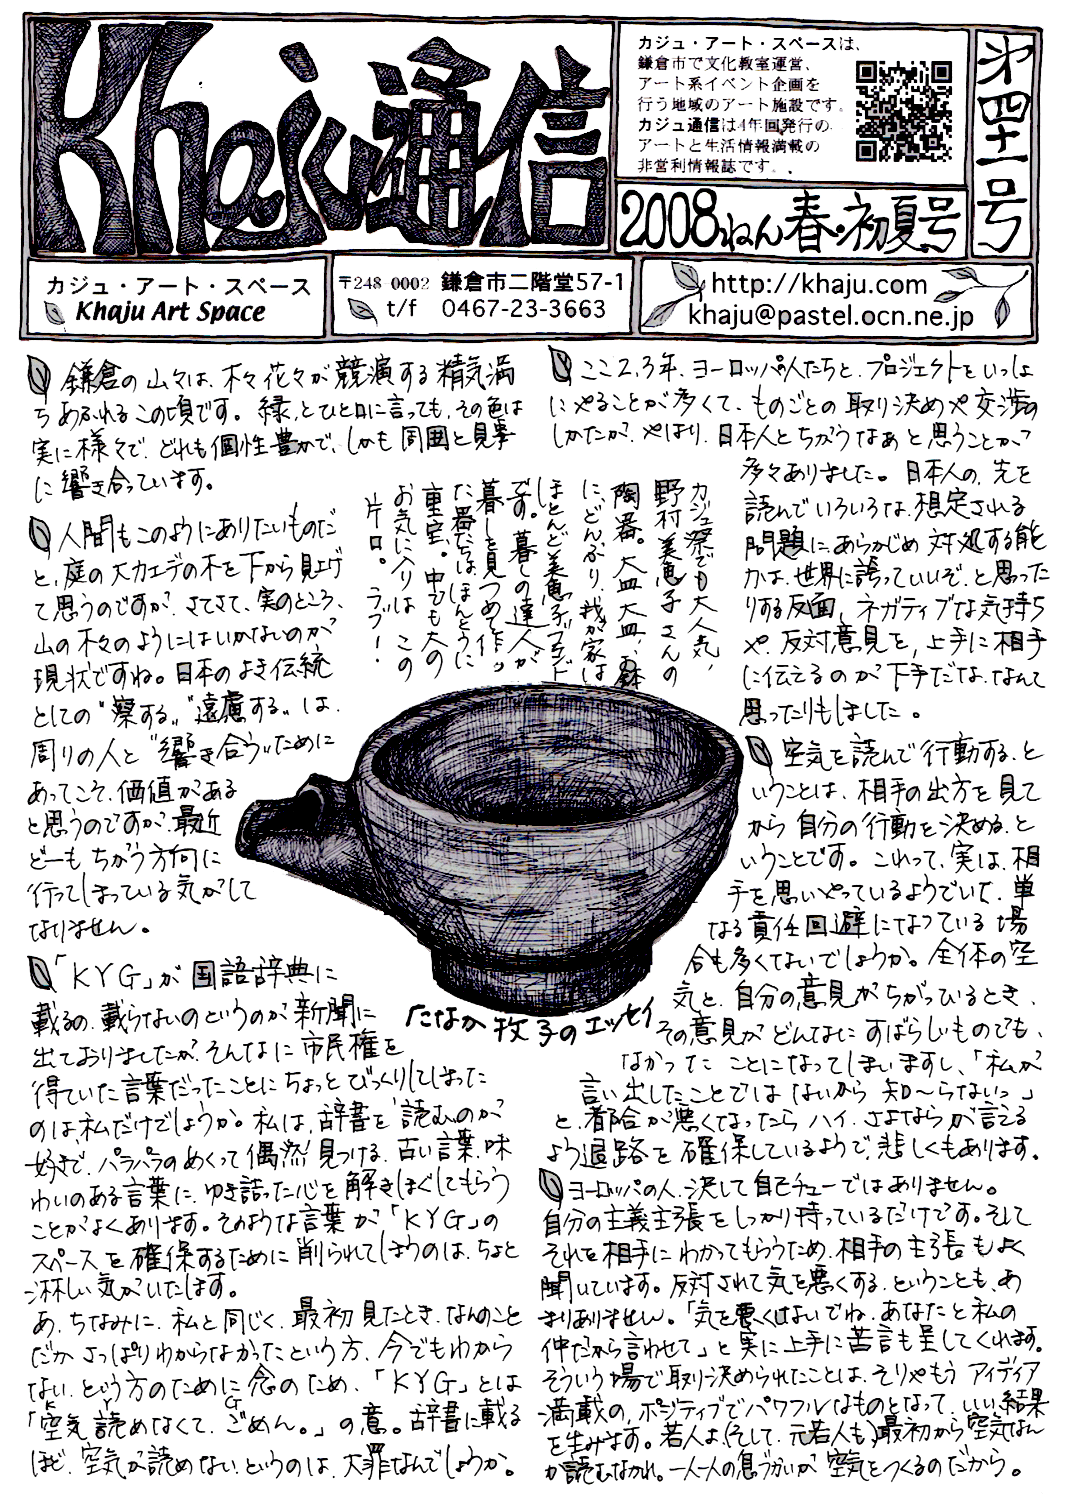 Khaju通信
カジュ・アート・スペースは、
鎌倉市で文化教室運営、
アート系イベント企画を
行う地域のアート施設です。
カジュ通信は4年回発行の
アートと生活情報満載の
非営利情報誌です。
第四十一号
2008ねん春・初夏号
カジュ・アート・スペース
Khaju Art Space
〒248-0002 鎌倉市二階堂57-1
t/f 0467-23-3663
http://khaju.com
khaju@pastel.ocn.ne.jp
鎌倉の山々は、木々花々が競演する精気満
ちあふれるこの頃です。緑、とひと口に言っても、その色は
実に様々で、どれも個性豊かで、しかも周囲と見事
に響き合っています。
人間もこのようにありたいものだ
と、庭の大カエデの木を下から見上げ
て思うのですが、さてさて、実のところ、
山の木々のようにはいかないのが
現状ですね。日本のよき伝統
としての“察する”“遠慮する”は、
周りの人と“響き合う”ために
あってこそ、価値がある
と思うのですが、最近
どーもちがう方向に
行ってしまっている気がして
なりません。
「KYG」が国語辞典に
載るの、載らないのというのが新聞に
出ておりましたが、そんなに市民権を
得ていた言葉だったことにちょっとびっくりしてしまった
のは、私だけでしょうか。私は、辞書を“読む”のが
好きで、パラパラのめくって偶然見つける、古い言葉、味
わいのある言葉に、ゆき詰った心を解きほぐしてもらう
ことがよくあります。そのような言葉が「KYG」の
スペースを確保するために削られてしまうのは、ちょと
淋しい気がいたします。
あ、ちなみに、私と同じく、最初見たとき、なんのこと
だかさっぱりわからなかったという方、今でもわから
ない、という方のために念のため、「KYG」とは
「空気読めなくて、ごめん。」の意。辞書に載る
K Y G
ほど、空気が読めない、というのは、大罪なんでしょうか。
カジュ派でも大人気、
野村美恵子さんの
陶器。大皿大皿、お鉢
に、どんぶり、我が家は
ほとんど美恵子ブランド
です。暮しの達人が
暮しを見つめて作っ
た器たちは、ほんとうに
重宝。中でも大の
お気に入りは、この
片口。ラブ〜・
たなか牧子のエッセイ
ここ2,3年、ヨーロッパ人たちと、プロジェクトをいっしょ
にやることが多くて、ものごとの取り決めや交渉の
しかたが、やはり、日本人とちがうなあと思うことが
多々ありました。日本人の、先を
読んでいろいろな、想定される
問題に、あらかじめ対処する能
力は、世界に誇っていいぞ、と思った
りする反面、ネガティブな気持ち
や、反対意見を、上手に相手
に伝えるのが下手だな、なんて
思ったりもしました。
空気を読んで行動する、と
いうことは、相手の出方を見て
から自分の行動を決める、と
いうことです。これって、実は、相
手を思いやっているようでいて、単
なる責任回避になっている場
合も多くないでしょうか。全体の空
気と、自分の意見がちがっいるとき、
その意見がどんなにすばらしいものでも、
なかったことになってしまいますし、「私が
言い出したことではないから知〜らないっ」
と、都合が悪くなったらハイ、さよならが言える
よう退路を確保しているようで、悲しくもあります。
ヨーロッパの人、決して自己チューではありません。
自分の主義主張をしっかり持っているだけです。そして
それを相手にわかってもらうため、相手の主張もよく
聞いています。反対されて気を悪くする、ということも、あ
まりありません。「気を悪くしないでね、あなたと私の
仲だから言わせて」と実に上手に苦言も呈してくれます。
そういう場で取り決められたことは、そりゃもうアイディア
満載の、ポジティブでパワフルなものとなって、いい結果
を生みます。若人よ、(そして、元若人も、)最初から空気なん
か読むなかれ。一人一人の息づかいが空気をつくるのだから。